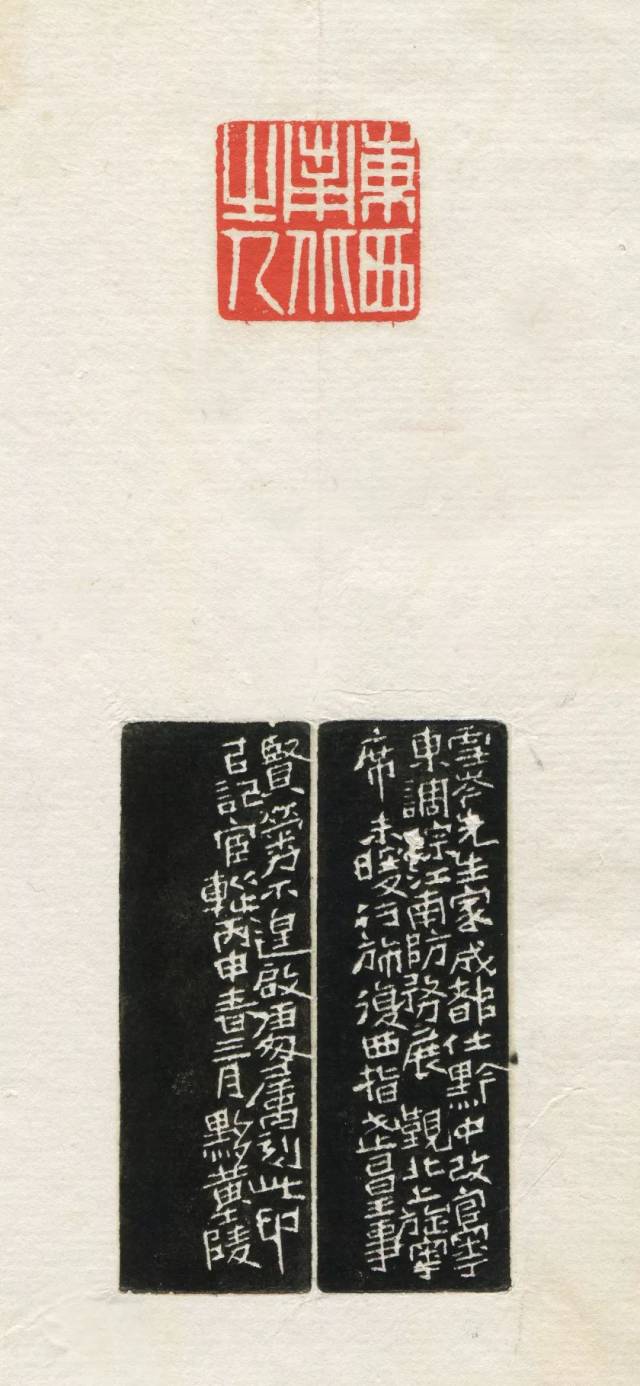 東西
南北
之人
雪岑先生家成都仕黔中改官寧
東調綜江南防務展 覲北上旋寧
席未暖行旆復西指武昌王事
賢勞不遑啟處屬刻此印
㠯記宦轍丙申春三月黟黃士陵